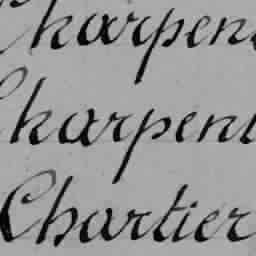 Charpen
Charpent
Chartier